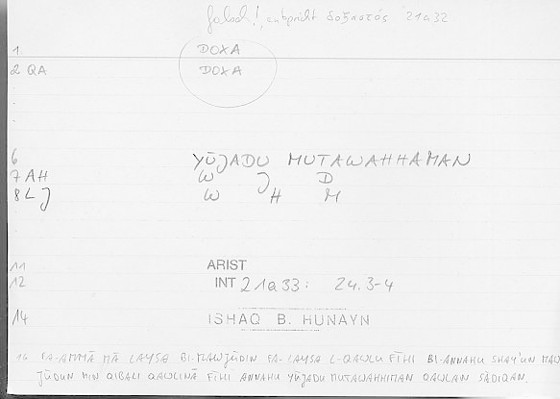 falsch!, entspricht δοξαστός 21a32
1 DOXA
2 QA DOXA
6 YŪJADU MUTAWAHHAMAN
7 AH W J D
8 LJ W H M
11 ARIST
12 INT 21a33: 24.3-4
14 ISHAQ B. HUNAYN
16 FA-AMMĀ MĀ LAYSA BI-MAWJŪDIN FA-LAYSA L-QAWLU FĪHI BI-ANNAHU SHAY'UN MAW
JŪDUN MIN QIBALI QAWLINĀ FĪHI ANNAHU YŪJADU MUTAWAHHIMAN QAWLAN SĀDIQAN.